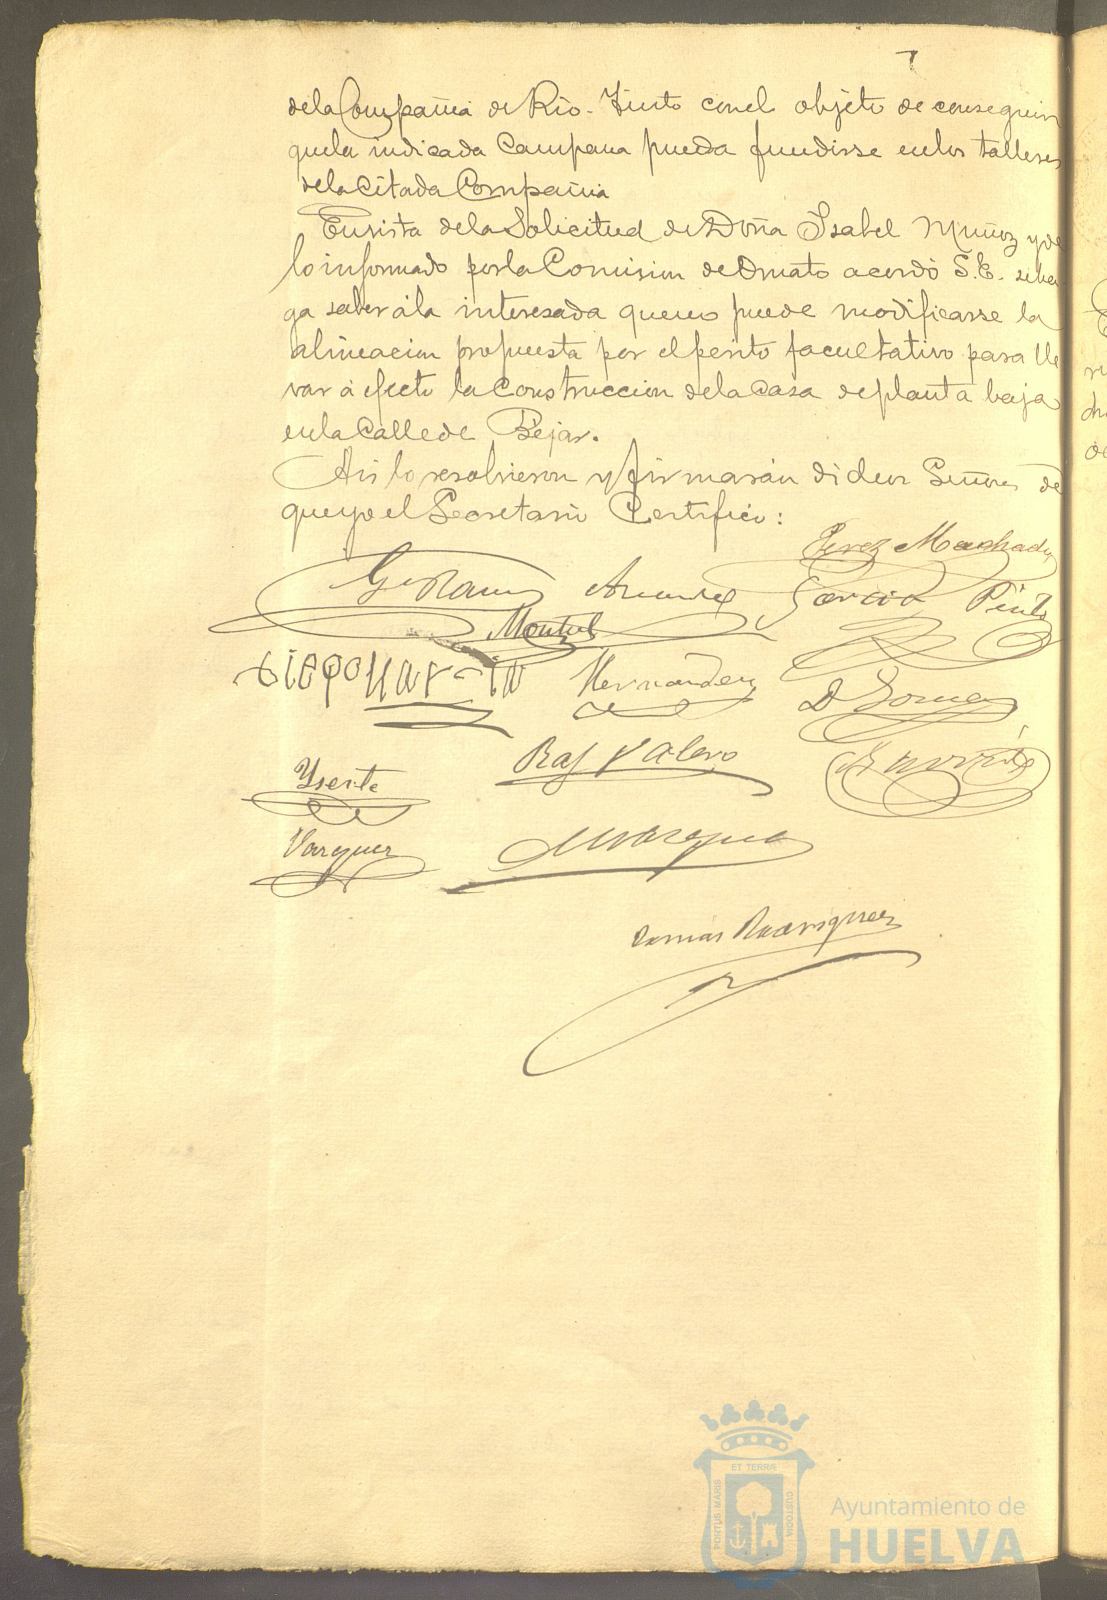 de la Compañia de Rio-Tinto con el objeto de conseguir
que la indicada Campana pueda fundirse en los talleres
de la citada Compañia
En vista de la Solicitud de Doña Isabel Muñoz y de
lo informado por la Comision de Ornato acordó S.E. se ha
ga saber á la interesada que no puede modificarse la
alineacion propuesta por el perito facultativo para lle
var á efecto la Construccion de la Casa de planta baja
en la Calle de Béjar.
Asi lo resolvieron y firmarán dichos Señores de
que yo el Secretario Certifico:
Perez Machado
Garcia Pinto
Montiel
Diego Martin
Hernandez
D Gomez
Raf Valero
Yserte
Vazquez
Marquez
Tomas Rodriguez
PORTUS MARIS ET TERRÆ CUSTODIA
Ayuntamiento de
HUELVA